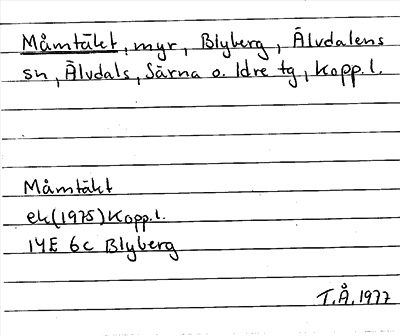 Måmtäkt, myr, Blyberg, Älvdalens
sn, Älvdals, Särna o. Idre tg, Kopp. l.
Måmtäkt
ek (1975) Kopp. l.
14E 6c Blyberg
T.Å. 1977